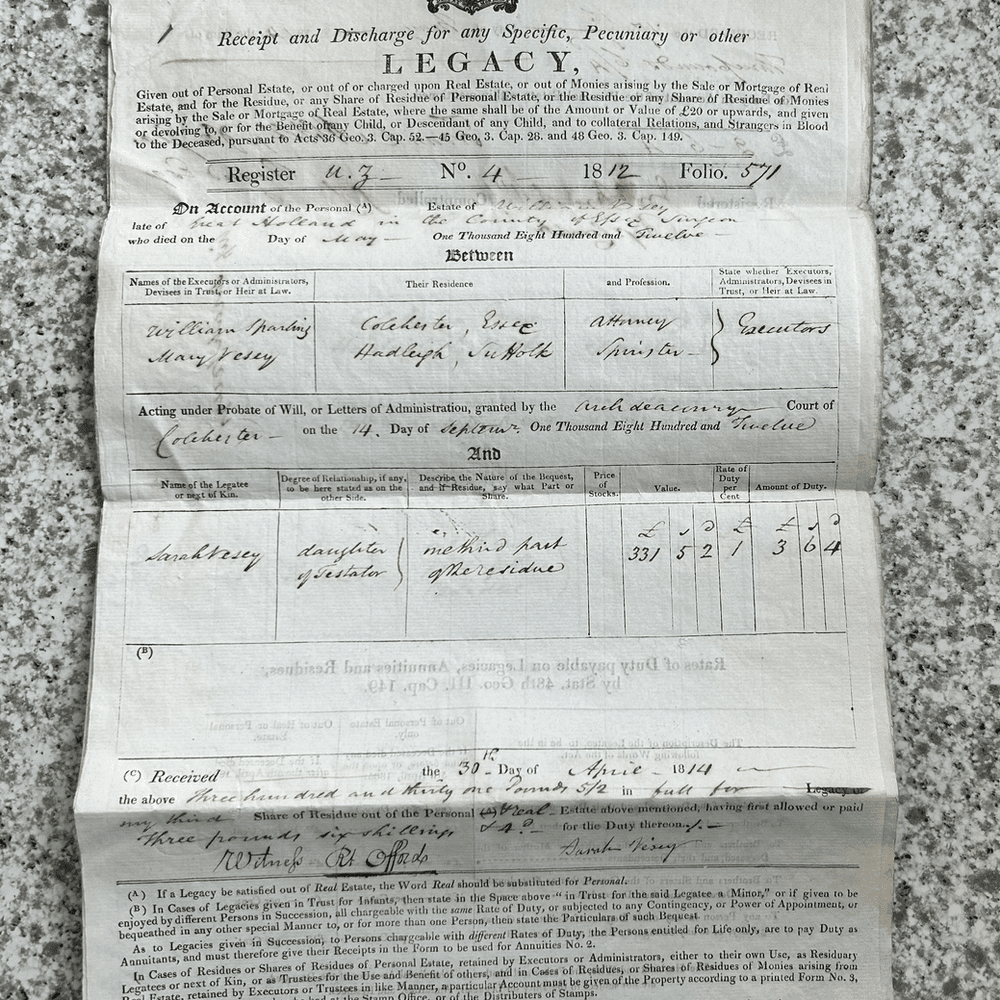 Receipt and Discharge for any Specific, Pecuniary or other
LEGACY,
Given out of Personal Estate, or out of or charged upon Real Estate, or out of Monies arising by the Sale or Mortgage of Real
Estate, and for the Residue, or any Share of Residue of Personal Estate, or the Residue or any Share of Residue of Monies
arising by the Sale or Mortgage of Real Estate, where the same shall be of the Amount or Value of £20 or upwards, and given
or devolving to, or for the Benefit of any Child, or Descendant of any Child, and to collateral Relations, and Strangers in Blood
to the Deceased, pursuant to Acts 36 Geo. 3. Cap. 52.—45 Geo. 3. Cap. 28. and 48 Geo. 3. Cap. 149.
Register U.Z. No. 4 1812 Folio. 571
On Account of the Personal (A) Estate of William Vesey
late of Great Holland in the County of Essex Surgeon
who died on the Day of May One Thousand Eight Hundred and Twelve
Between
Names of the Executors or Administrators, Devisees in Trust, or Heir at Law. Their Residence and Profession. State whether Executors, Administrators, Devisees in Trust, or Heir at Law.
William Sparling Colchester, Essex Attorney } Executors
Mary Vesey Hadleigh, Suffolk Spinster
Acting under Probate of Will, or Letters of Administration, granted by the Archdeaconry Court of
Colchester on the 14. Day of Septemr. One Thousand Eight Hundred and Twelve
And
Name of the Legatee or next of Kin. Degree of Relationship, if any, to be here stated as on the other Side. Describe the Nature of the Bequest, and if Residue, say what Part or Share. Price of Stocks. Value. Rate of Duty per Cent Amount of Duty.
£ s d £ £ s d
Sarah Vesey daughter one third part 331 5 2 1 3 6 4
of Testator of the residue
(B)
(C) Received the 30th Day of April 1814
the above Three hundred and thirty one Pounds 5/2 in full for Legacy or
my third Share of Residue out of the Personal (A) & Real Estate above mentioned, having first allowed or paid
three pounds six shillings & 4d for the Duty thereon.
Witness Rt Offord Sarah Vesey
(A) If a Legacy be satisfied out of Real Estate, the Word Real should be substituted for Personal.
(B) In Cases of Legacies given in Trust for Infants, then state in the Space above “in Trust for the said Legatee a Minor,” or if given to be
enjoyed by different Persons in Succession, all chargeable with the same Rate of Duty, or subjected to any Contingency, or Power of Appointment, or
bequeathed in any other special Manner to, or for more than one Person, then state the Particulars of such Bequest.
As to Legacies given in Succession, to Persons chargeable with different Rates of Duty, the Persons entitled for Life only, are to pay Duty as
Annuitants, and must therefore give their Receipts in the Form to be used for Annuities No. 2.
In Cases of Residues or Shares of Residues of Personal Estate, retained by Executors or Administrators, either to their own Use, as Residuary
Legatees or next of Kin, or as Trustees for the Use and Benefit of others, and in Cases of Residues, or Shares of Residues of Monies arising from
Real Estate, retained by Executors or Trustees in like Manner, a particular Account must be given of the Property according to a printed Form No. 3,
at the Stamp Office, or of the Distributers of Stamps.